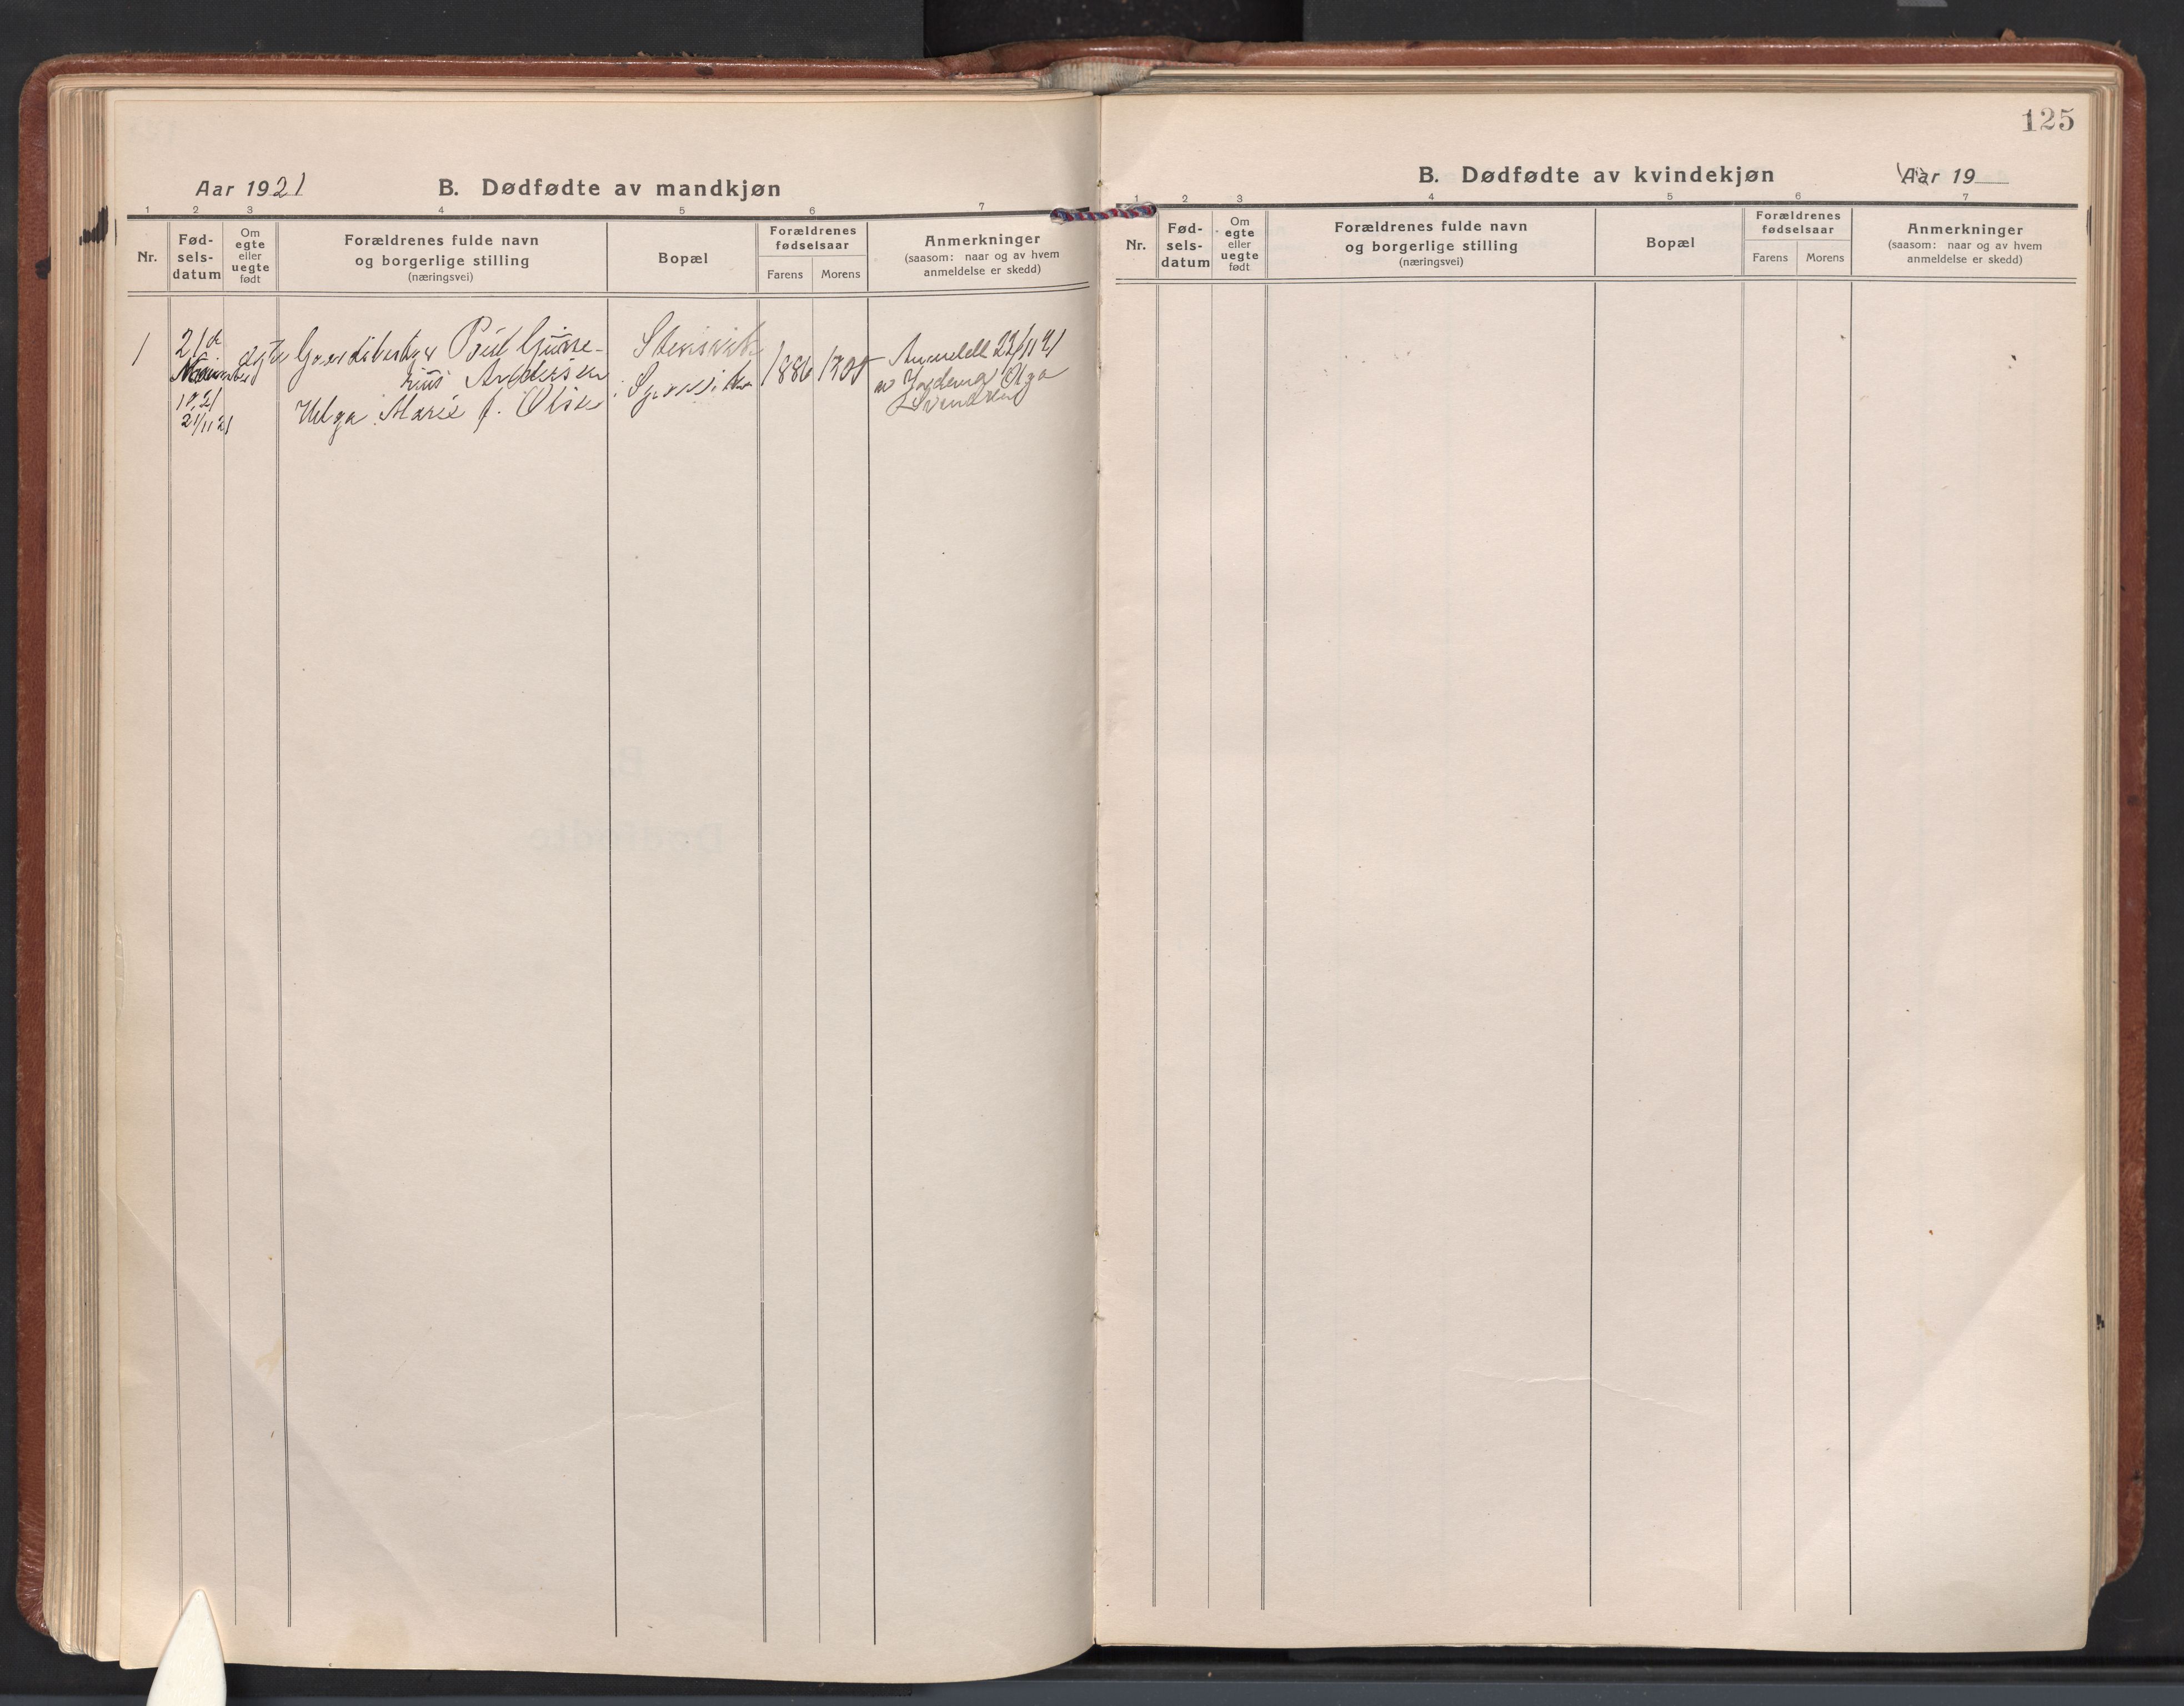 Aar 1921
B. Dødfødte av mandkjøn
1 2 3 4 5 6 7
Nr.
Fød-
sels-
datum
Om
egte
eller
uegte
født
Forældrenes fulde navn
og borgerlige stilling
(næringsvei)
Bopæl
Forældrenes
fødselsaar
Farens Morens
Anmerkninger
(saasom: naar og av hvem
anmeldelse er skedd)
1
21de
November
1921
21/11 21
egte
Gaardbruker
Andersen
Helga Marie f. Olsen
1886
Anmeldt 22/11 21
av Jordemor Olga
Svendsen
125
B. Dødfødte av kvindekjøn
Aar 19
1 2 3 4 5 6 7
Nr.
Fød-
sels-
datum
Om
egte
eller
uegte
født
Forældrenes fulde navn
og borgerlige stilling
(næringsvei)
Bopæl
Forældrenes
fødselsaar
Farens Morens
Anmerkninger
(saasom: naar og av hvem
anmeldelse er skedd)